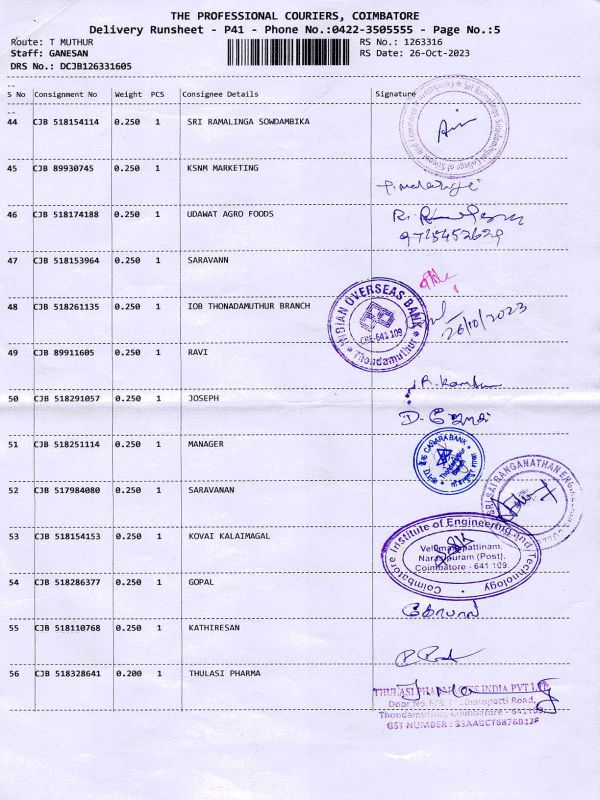 THE PROFESSIONAL COURIERS, COIMBATORE
Delivery Runsheet - P41 - Phone No.:0422-3505555 - Page No.:5
Route: T MUTHUR RS No.: 1263316
Staff: GANESAN RS Date: 26-Oct-2023
DRS No.: DCJB126331605
S No Consignment No Weight PCS Consignee Details Signature
44 CJB 518154114 0.250 1 SRI RAMALINGA SOWDAMBIKA
45 CJB 89930745 0.250 1 KSNM MARKETING
46 CJB 518174188 0.250 1 UDAWAT AGRO FOODS
9715452629
47 CJB 518153964 0.250 1 SARAVANN
48 CJB 518261135 0.250 1 IOB THONADAMUTHUR BRANCH
INDIAN OVERSEAS BANK
CBE-641 109
Thondamuthur
26/10/2023
49 CJB 89911605 0.250 1 RAVI
50 CJB 518291057 0.250 1 JOSEPH
51 CJB 518251114 0.250 1 MANAGER
CANARA BANK
52 CJB 517984080 0.250 1 SARAVANAN
SRI SAI RANGANATHAN ENG
53 CJB 518154153 0.250 1 KOVAI KALAIMAGAL
Coimbatore Institute of Engineering and Technology
Narasipuram (Post).
Coimbatore - 641 109.
54 CJB 518286377 0.250 1 GOPAL
55 CJB 518110768 0.250 1 KATHIRESAN
56 CJB 518328641 0.200 1 THULASI PHARMA
THULASI PHARMACIES INDIA PVT LTD
Thondamuthur, Coimbatore - 641109.
GST NUMBER : 33AAECT6876B1ZF